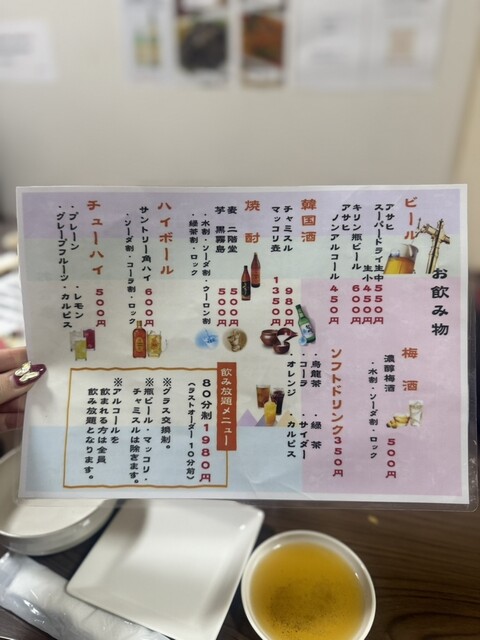 お飲み物
ビール
アサヒ
スーパードライ生中 550円
生小 450円
キリン瓶ビール 600円
アサヒ
ノンアルコール 450円
韓国酒
チャミスル 980円
マッコリ壺 1350円
焼酎
麦 二階堂 500円
芋 黒霧島 500円
・水割・ソーダ割・ウーロン割
・緑茶割・ロック
ハイボール
サントリー角ハイ 600円
・ソーダ割・コーラ割・ロック
チューハイ 500円
・プレーン ・レモン
・グレープフルーツ ・カルピス
梅酒
濃醇梅酒 500円
・水割・ソーダ割・ロック
ソフトドリンク 350円
・烏龍茶 ・緑茶
・コーラ ・サイダー
・オレンジ ・カルピス
飲み放題メニュー
80分制 1980円
(ラストオーダー10分前)
※グラス交換制。
※瓶ビール・マッコリ・
チャミスルは除きます。
※アルコールを
飲まれる方は全員
飲み放題となります。